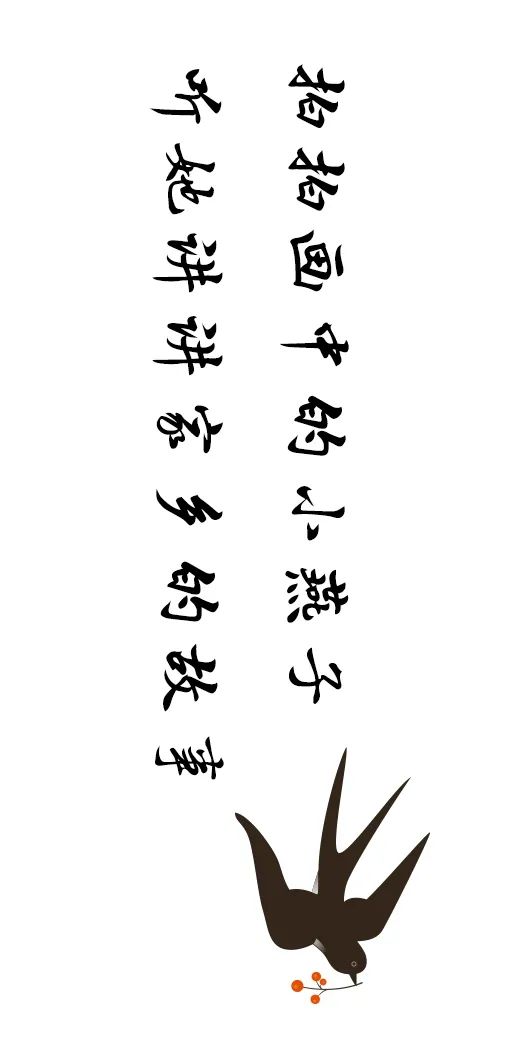 拍拍画中的小燕子
听她讲讲家乡的故事